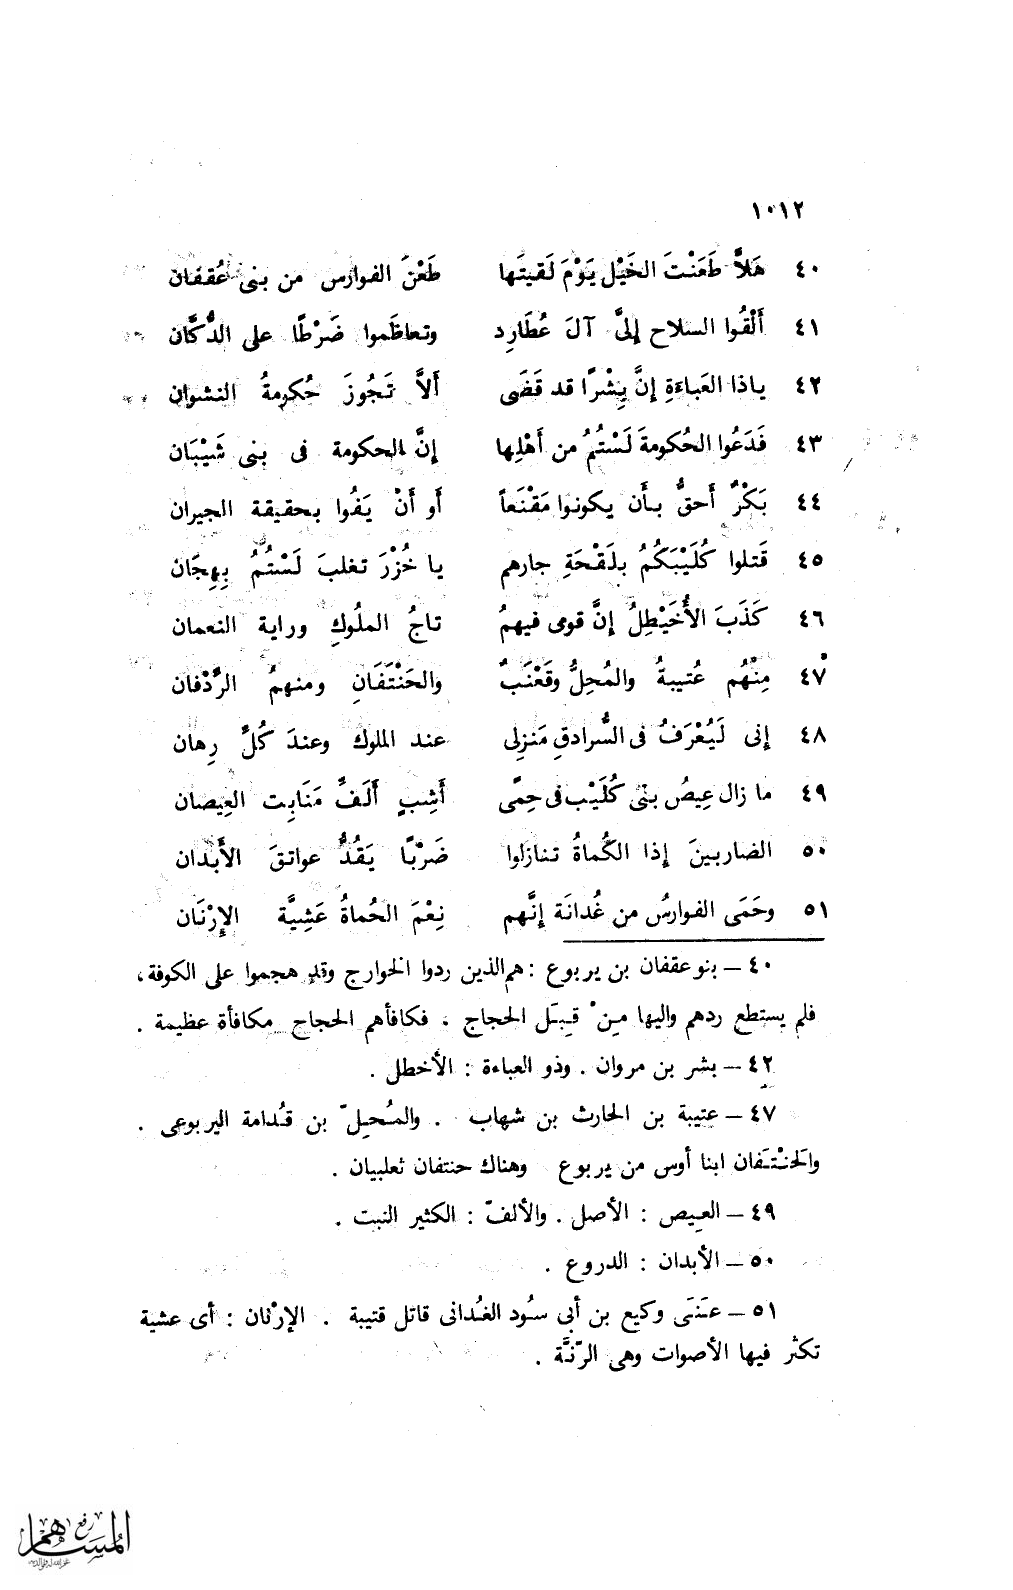 ١٠١٢
٤٠ هَلاَّ طَعَنْتَ الخَيْل يَوْمَ لَقيتَها طَعْنَ الفوارس من بنى عُقفان
٤١ أَلْقُوا السلاح إلىَّ آلَ عُطَارِد وتعاظَموا ضَرْطًا على الدُّكَّان
٤٢ ياذا العَباءَةِ إنَّ بِشْرًا قد قَضَى ألاَّ تَجُوزَ حُكومةُ النشوان
٤٣ فَدَعُوا الحُكومةَ لَسْتُمُ من أَهْلِها إنَّ الحكومة فى بنى شَيْبَان
٤٤ بَكْرٌ أَحقُّ بأن يكونوا مَقْنَعاً أو أَنْ يَفُوا بحقيقة الجيران
٤٥ قَتلوا كُلَيْبَكُمُ بلَقْحَةِ جارهم يا خُزْرَ تغلبَ لَسْتُمُ بِهِجَان
٤٦ كَذَبَ الأُخَيْطِلُ إنَّ قومى فيهمُ تاجُ الملُوكِ وراية النعمان
٤٧ مِنْهُم عُتيبةُ والمُحِلُّ وقَعْنَبٌ والحَنْتَفَانِ ومنهمُ الرِّدْفان
٤٨ إنى لَيُعْرَفُ فى السُّرادقِ مَنزلِى عند الملوك وعندَ كُلِّ رِهان
٤٩ ما زال عِيصُ بنى كُلَيْب فى حِمًى أَشِبٍ أَلَفِّ مَنَابِت العِيصان
٥٠ الضاربينَ إذا الكُماةُ تنازلوا ضَرْبًا يَقُدُّ عواتقَ الأَبْدان
٥١ وحَمَى الفوارسُ من غُدانَة إنَّهم نِعْمَ الحُماةُ عَشِيَّة الإِرْنَان
٤٠ – بنو عقفان بن يربوع : هم الذين ردوا الخوارج وقد هجموا على الكوفة ،
فلم يستطع ردهم واليها مِنْ قِبَل الحجاج . فكافأهم الحجاج مكافأة عظيمة .
٤٢ – بشر بن مروان . وذو العباءة : الأخطل .
٤٧ – عتيبة بن الحارث بن شهاب . والمُحِلّ بن قُدامة اليربوعى .
والحَنْتَفان ابنا أوس من يربوع وهناك حنتفان ثعلبيان .
٤٩ – العيِص : الأصل . والألفّ : الكثير النبت .
٥٠ – الأبدان : الدروع .
٥١ – عَنَى وكيع بن أبى سُود الغُدانى قاتل قتيبة . الإرْنان : أى عشية
تكثر فيها الأصوات وهى الرّنَّة .